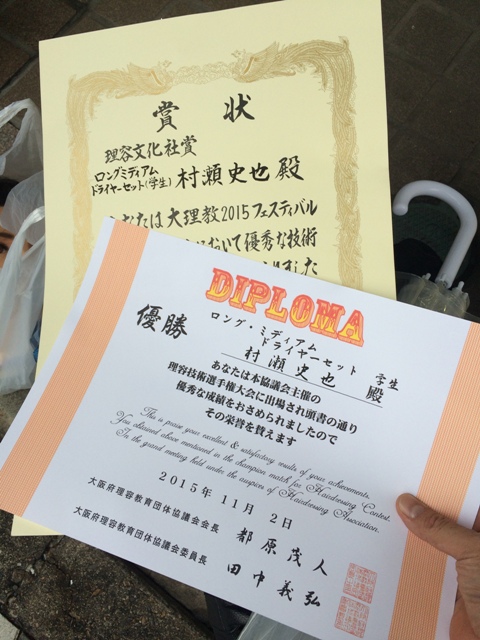 賞状
理容文化社賞
ロングミディアム
ドライヤーセット(学生) 村瀬史也殿
あなたは大理教2015フェスティバル
おいて優秀な技術
ました
DIPLOMA
優勝
ロング・ミディアム
ドライヤーセット
学生
村瀬史也 殿
あなたは本協議会主催の
理容技術選手権大会に出場され頭書の通り
優秀な成績をおさめられましたので
その栄誉を讃えます
This is praise your excellent & satisfactory results of your achievements.
You obtained above mentioned in the champion match for Hairdressing Contest.
In the grand meeting held under the auspices of Hairdressing Association.
2015年11月2日
大阪府理容教育団体協議会会長 都原茂人
大阪府理容教育団体協議会委員長 田中義弘